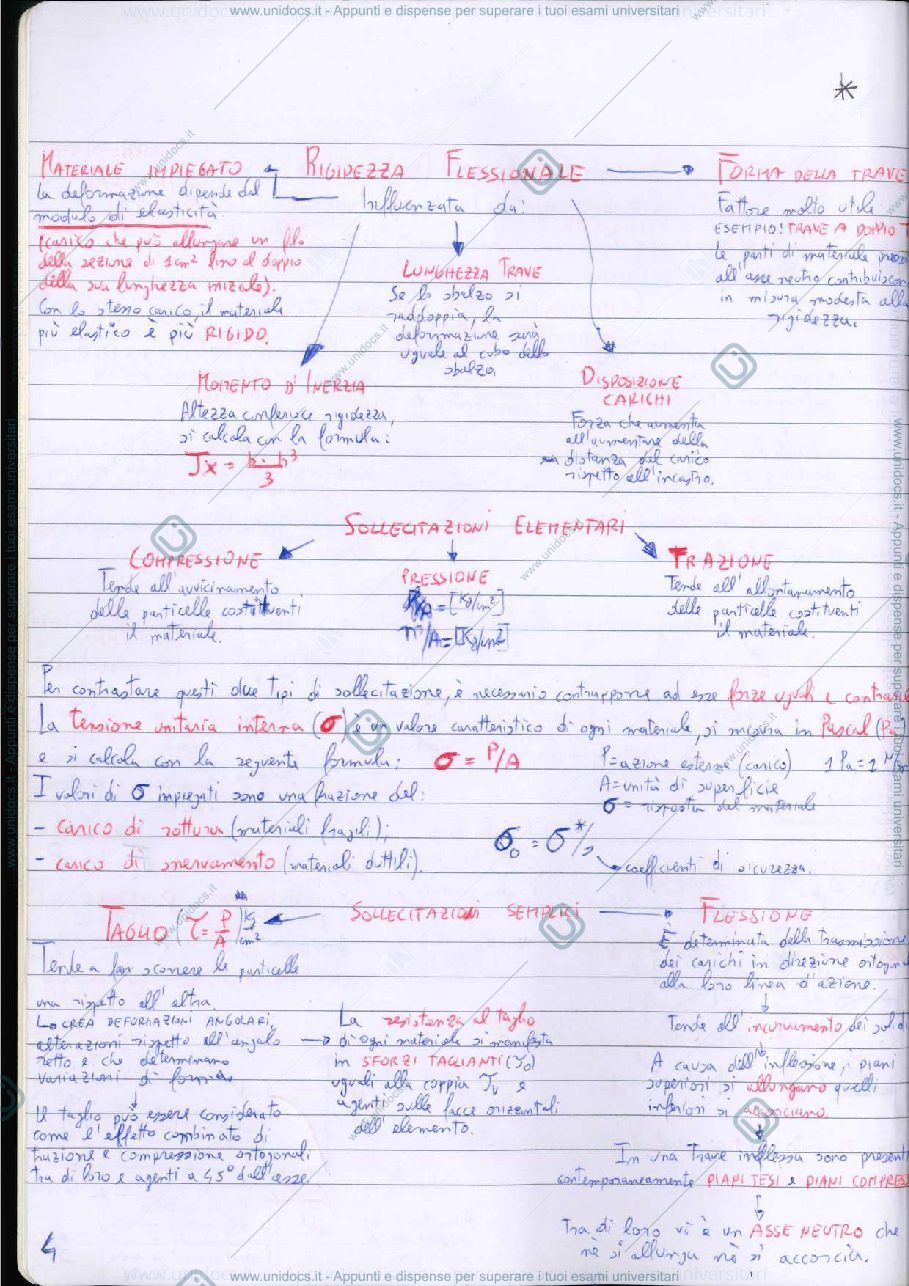 www.unidocs.it - Appunti e dispense per superare i tuoi esami universitari
*
MATERIALE IMPIEGATO
La deformazione dipende dal
modulo di elasticità
(carico che può allungare un filo
della sezione di 1 cm² fino al doppio
della sua lunghezza iniziale).
Con lo stesso carico, il materiale
più elastico è più RIGIDO.
RIGIDEZZA FLESSIONALE
Influenzata da:
FORMA DELLA TRAVE
Fattore molto utile
ESEMPIO: TRAVE A DOPPIO T
Le parti di materiale
all'asse neutro contribuiscon
in misura modesta alla
rigidezza.
LUNGHEZZA TRAVE
Se lo sbalzo si
raddoppia, la
deformazione sarà
uguale al cubo dello
sbalzo.
MOMENTO D'INERZIA
Altezza conferisce rigidezza,
si calcola con la formula:
Jx = b·h³/3
DISPOSIZIONE
CARICHI
Forza che aumenta
all'aumentare della
distanza del carico
rispetto all'incastro.
SOLLECITAZIONI ELEMENTARI
COMPRESSIONE
Tende all'avvicinamento
delle particelle costituenti
il materiale.
PRESSIONE
/A = [Kg/cm²]
/A = [Kg/cm²]
TRAZIONE
Tende all'allontanamento
delle particelle costituenti
il materiale.
Per contrastare questi due tipi di sollecitazione, è necessario contrapporre ad esse forze uguali e contrarie
La tensione unitaria interna (σ) è un valore caratteristico di ogni materiale, si misura in Pascal (Pa)
e si calcola con la seguente formula: σ = P/A P=azione esterna (carico) 1 Pa = 1 N/
A=unità di superficie
I valori di σ impiegati sono una frazione del: σ = risposta del materiale
- carico di rottura (materiali fragili);
- carico di snervamento (materiali duttili).
σ₀ = σ*/
coefficienti di sicurezza.
SOLLECITAZIONI SEMPLICI
TAGLIO (τ = P/A) Kg/cm²
Tende a far scorrere le particelle
una rispetto all'altra.
CREA DEFORMAZIONI ANGOLARI,
alterazioni rispetto all'angolo
retto e che determinano
variazioni di forma
Il taglio può essere considerato
come l'effetto combinato di
trazione e compressione ortogonali
tra di loro e agenti a 45° dall'asse.
La resistenza al taglio
di ogni materiale si manifesta
in SFORZI TAGLIANTI (τ₀)
uguali alla coppia τ e
agenti sulle facce orizzontali
dell'elemento.
FLESSIONE
È determinata dalla trasmissione
dei carichi in direzione ortogonale
alla loro linea d'azione.
Tende all'incurvamento dei solidi
A causa dell'inflessione, i piani
superiori si allungano quelli
inferiori si accorciano.
In una trave inflessa sono presenti
contemporaneamente PIANI TESI e PIANI COMPRES
Tra di loro vi è un ASSE NEUTRO che
nè si allunga nè si accorcia.
4
www.unidocs.it - Appunti e dispense per superare i tuoi esami universitari